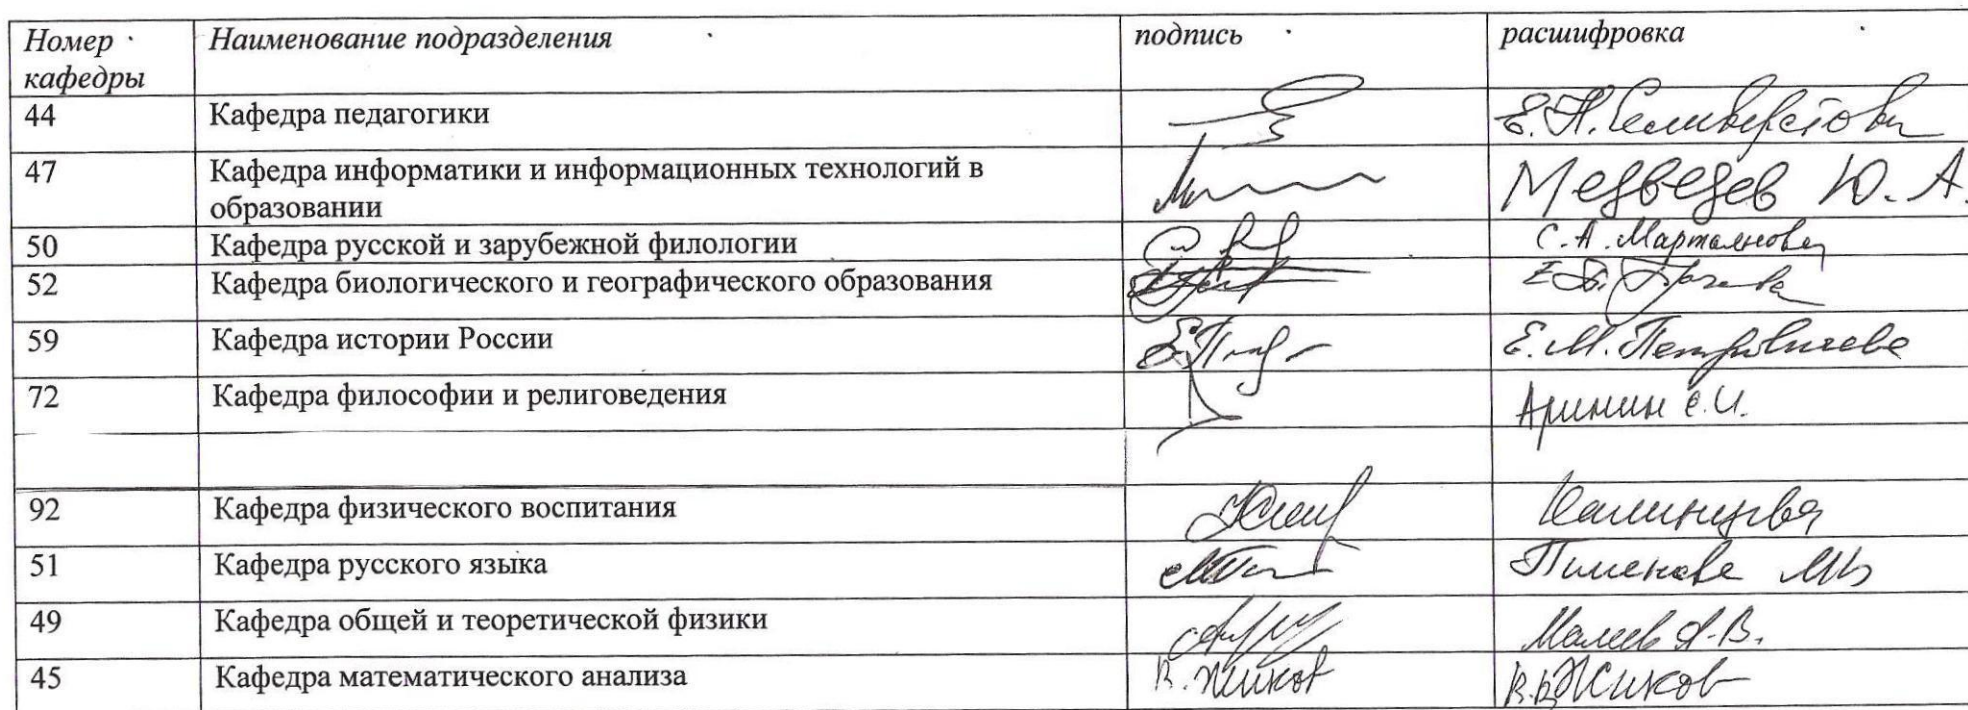 Номер Наименование подразделения подпись расшифровка
кафедры
44 Кафедра педагогики Е.Н. Селиверстова
47 Кафедра информатики и информационных технологий в Медведев Ю.А.
образовании
50 Кафедра русской и зарубежной филологии С.А. Мартьянова
52 Кафедра биологического и географического образования
59 Кафедра истории России Е.М. Петровичева
72 Кафедра философии и религоведения Аринин Е.И.
92 Кафедра физического воспитания
51 Кафедра русского языка Пименова МВ
49 Кафедра общей и теоретической физики Малеев А.В.
45 Кафедра математического анализа В. Жиков В.В. Жиков